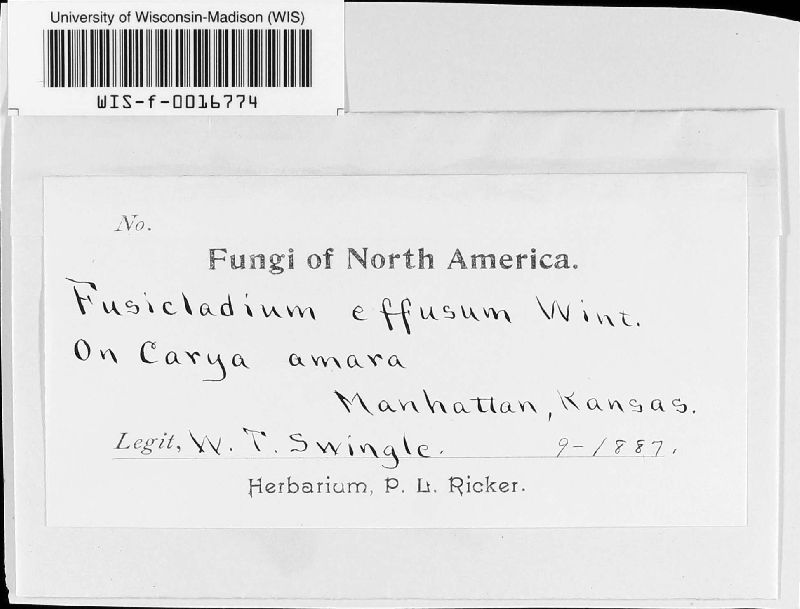 University of Wisconsin-Madison (WIS)
WIS-f-0016774
No.
Fungi of North America.
Fusicladium effusum Wint.
On Carya amara
Manhattan, Kansas.
Legit, W. T. Swingle. 9-1887.
Herbarium, P. L. Ricker.